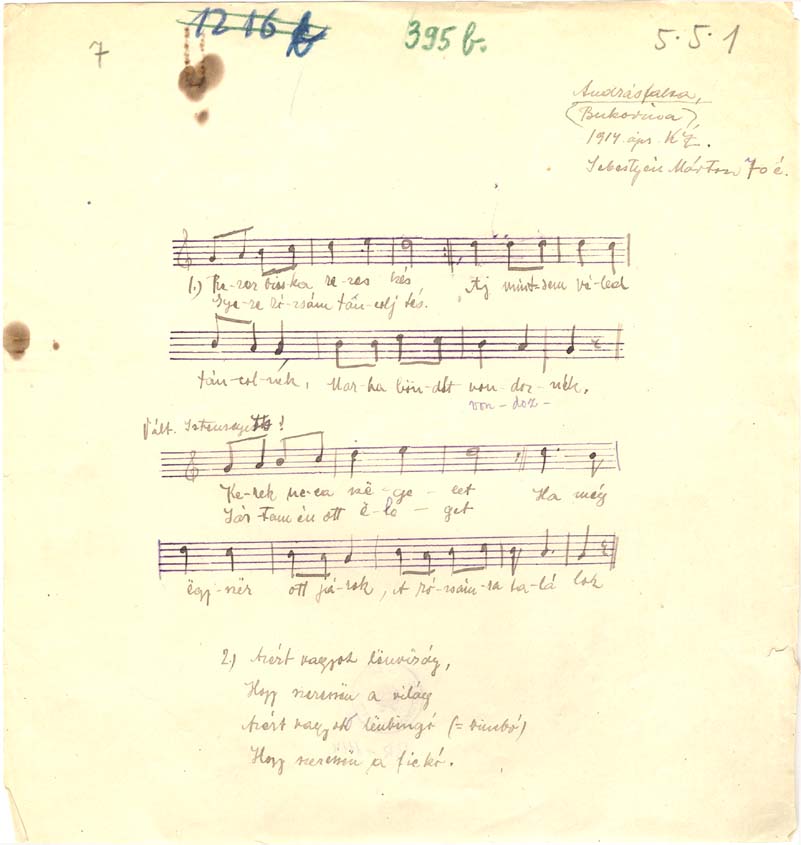 7
1216 b
395 b.
5.5.1
Andrásfalva,
(Bukovina),
1914 ápr. K Z.
Sebestyén Márton 70 é.
1.) Re-zor re-zes kés Aj mint-sem vé-led
Gye-re ró-zsám tán-colj tés.
tán-col-nék, Mar-ha bőn-dőt von-doz-nék.
von-doz-
Vált.
Ke-rek uc-ca szë-ge-let Ha még
Jár-tam én ott ë-lé-get
ëgy-szër ott já-rok, A ró-zsám-ra ta-lá lok
2.) Azért vagyok lënvirág,
Hogy szeressën a világ
Azért vagyok lënbingó (= bimbó)
Hogy szeressën a fickó.